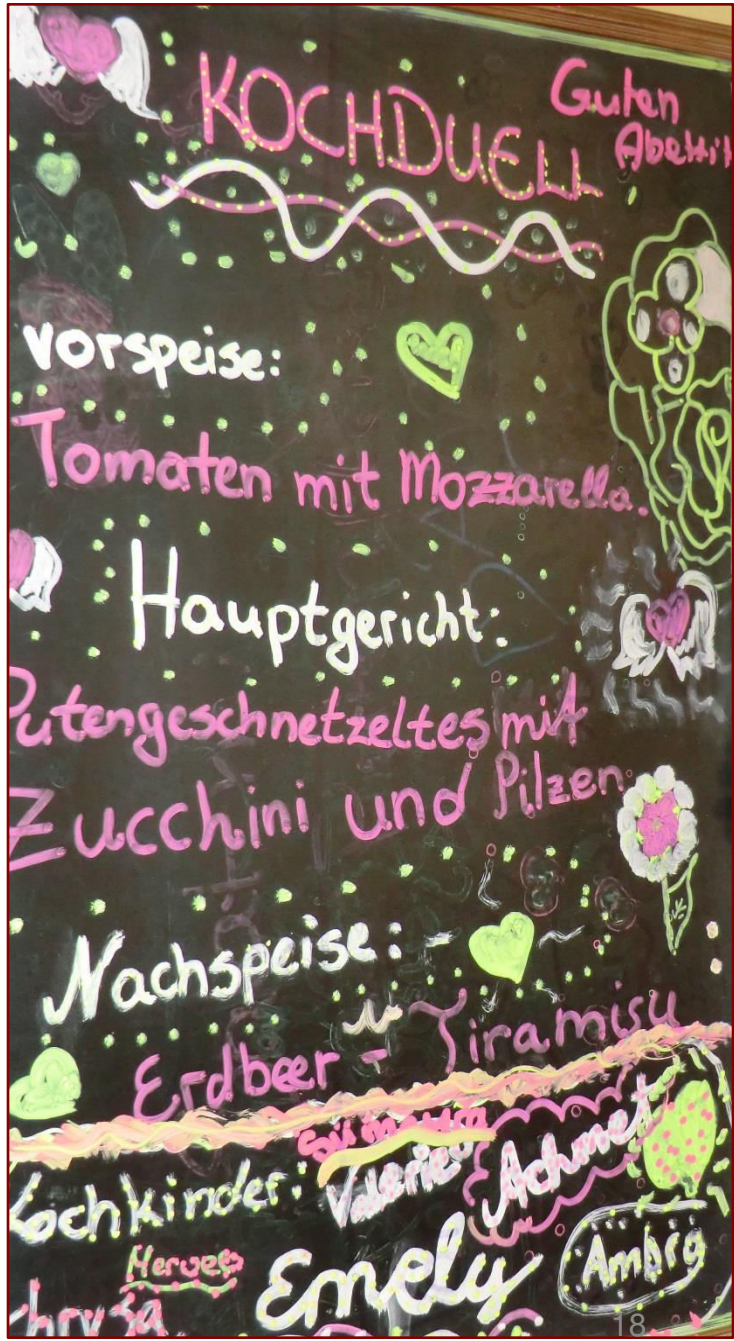 KOCHDUELL
Guten
vorspeise:
Tomaten mit Mozzarella.
Hauptgericht:
Putengeschnetzeltes mit
Zucchini und Pilzen
Nachspeise:
Erdbeer - Tiramisu
Kochkinder: Valerie Achmet
Merve
Emely Ambra
18